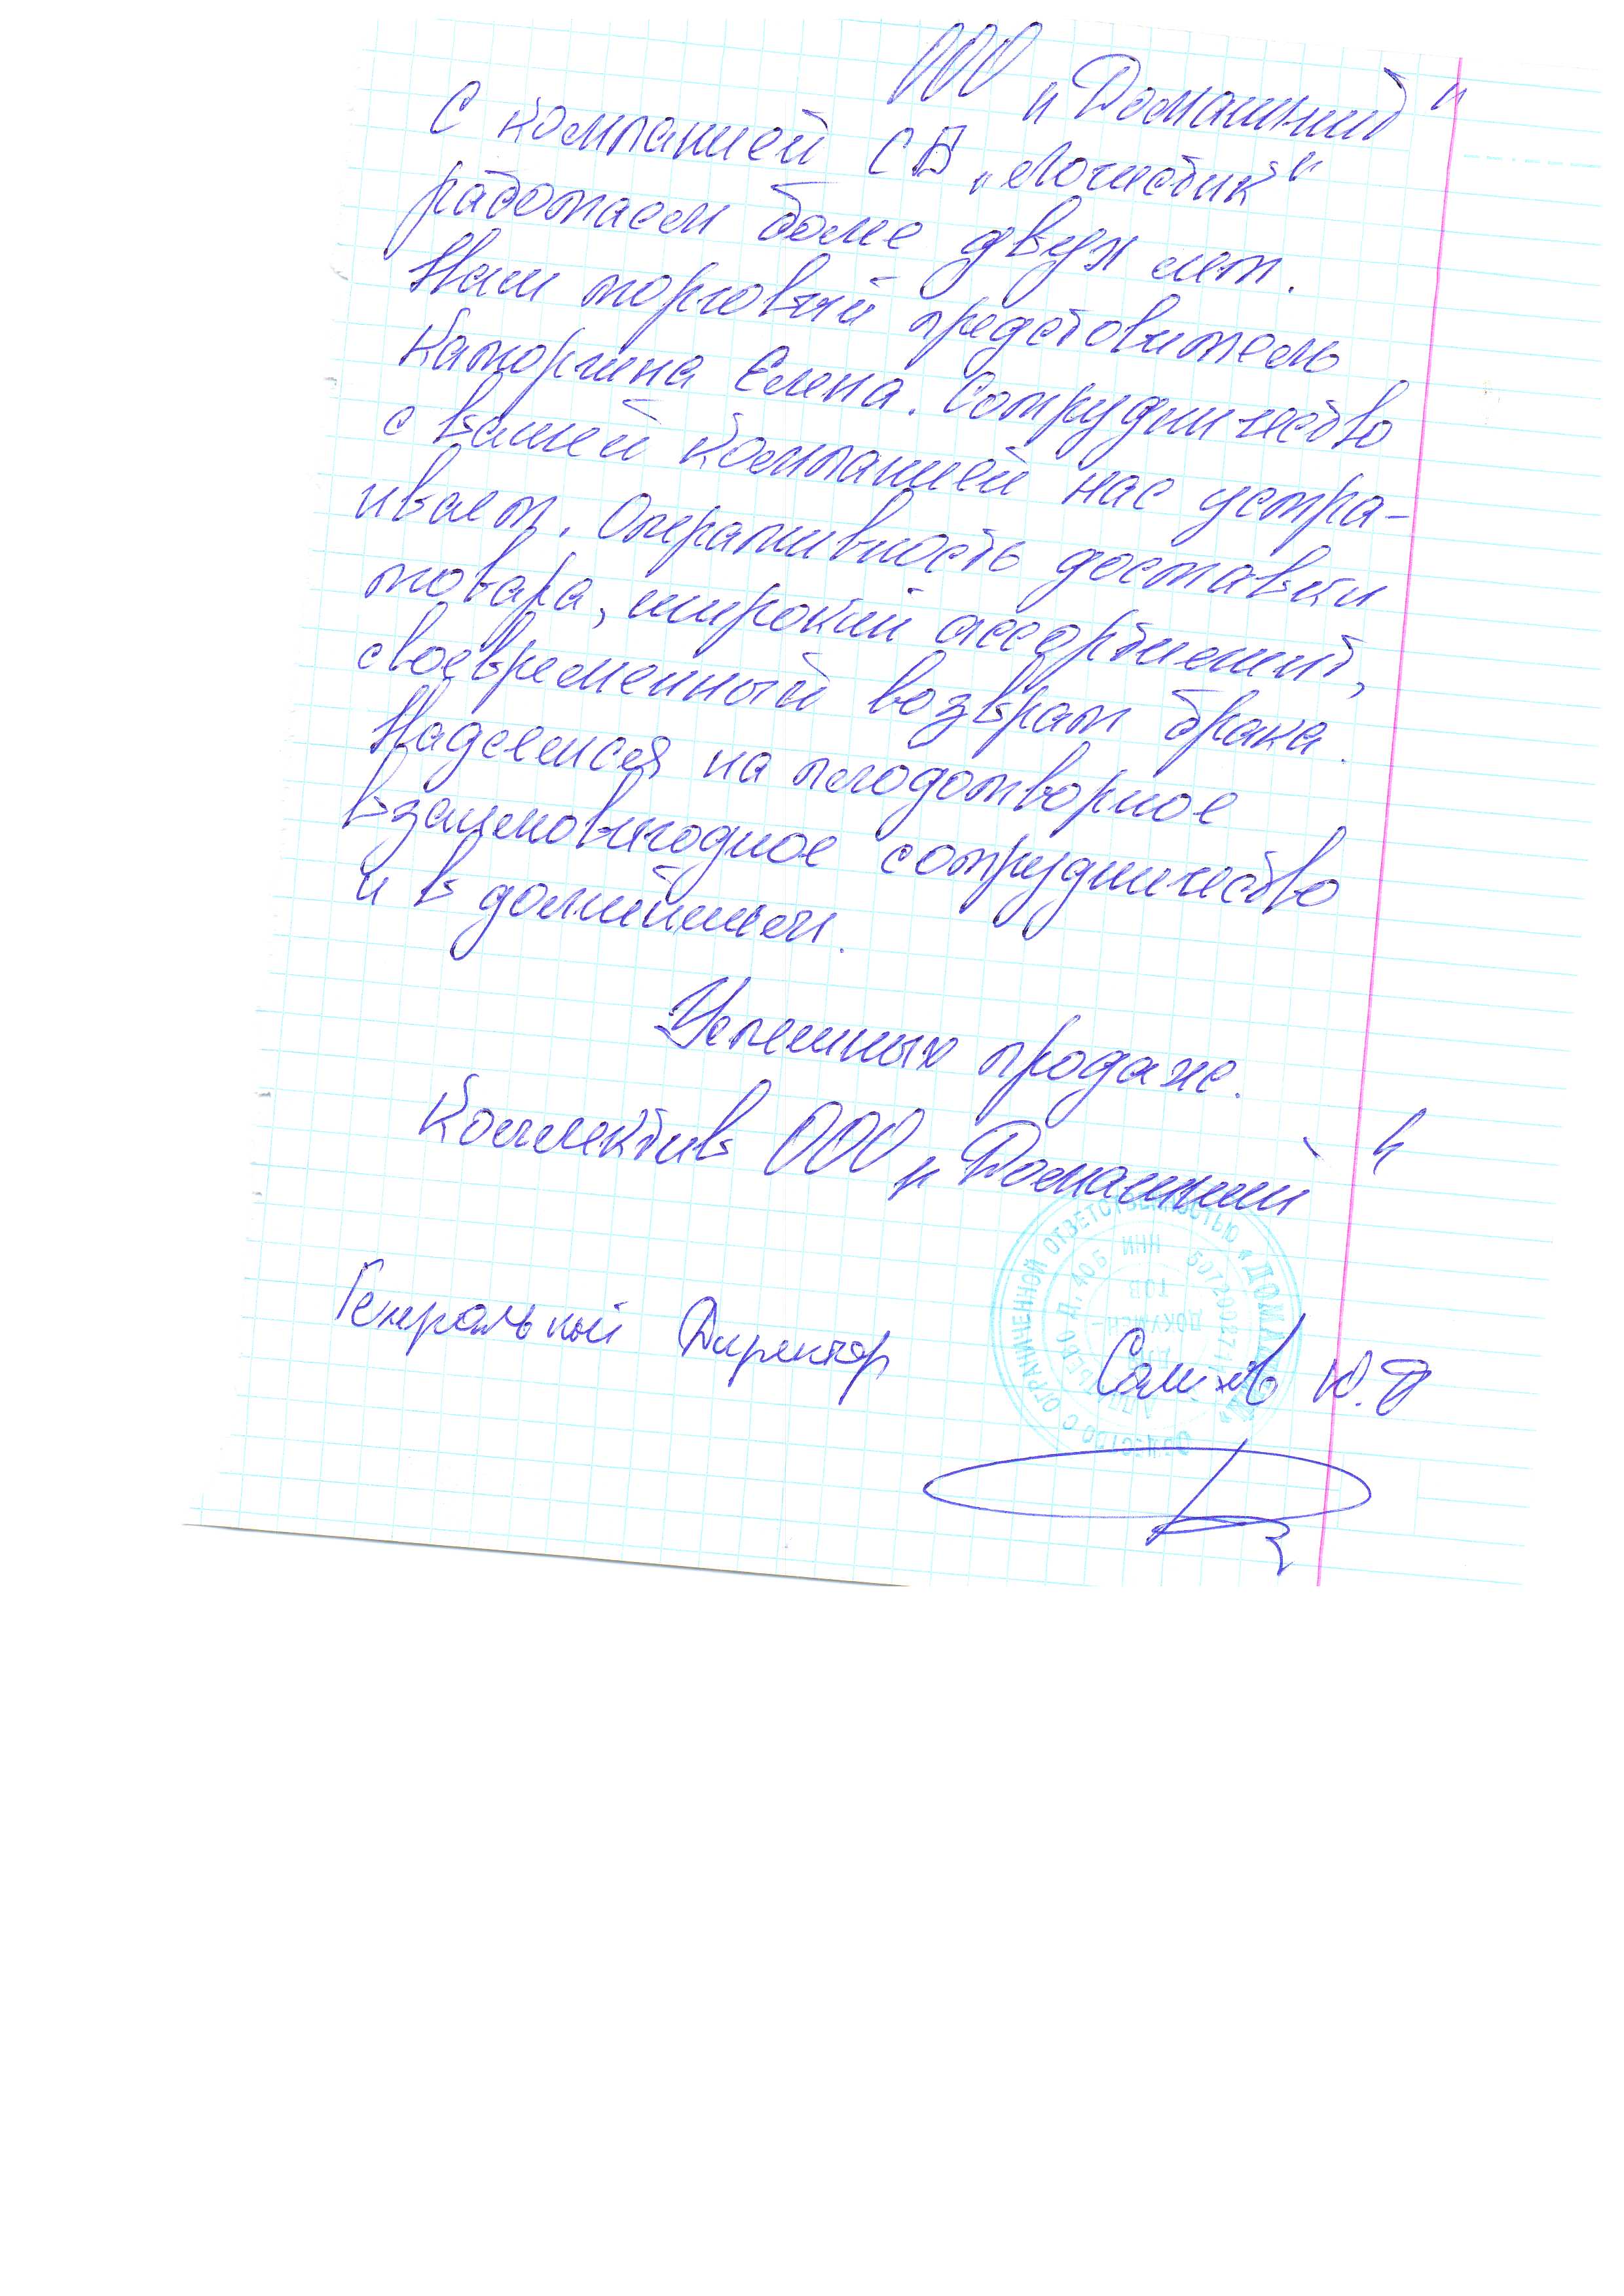 ООО „Домашний"
С компанией СВ „Логистик"
работаем более двух лет.
Наш торговый представитель
Каторгина Елена. Сотрудничество
с вашей компанией нас устра-
ивает. Оперативность доставки
товара, широкий ассортимент,
своевременный возврат брака.
Надеемся на плодотворное
взаимовыгодное сотрудничество
и в дальнейшем.
Успешных продаж.
Коллектив ООО „Домашний"
Генеральный Директор Ю.
ОБЩЕСТВО С ОГРАНИЧЕННОЙ ОТВЕТСТВЕННОСТЬЮ «ДОМАШНИЙ»
Д. 40Б ИНН
ДОКУМЕН-
ТОВ